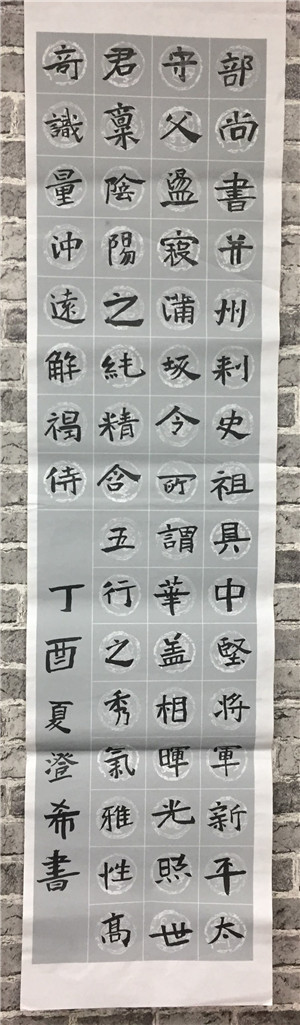 部尚書并州刺史祖具中堅将軍新平太
守父盪寇蒲坂令所謂華盖相暉光照世
君稟陰陽之純精含五行之秀氣雅性髙
竒識量沖遠解褐侍
丁酉夏澄希書